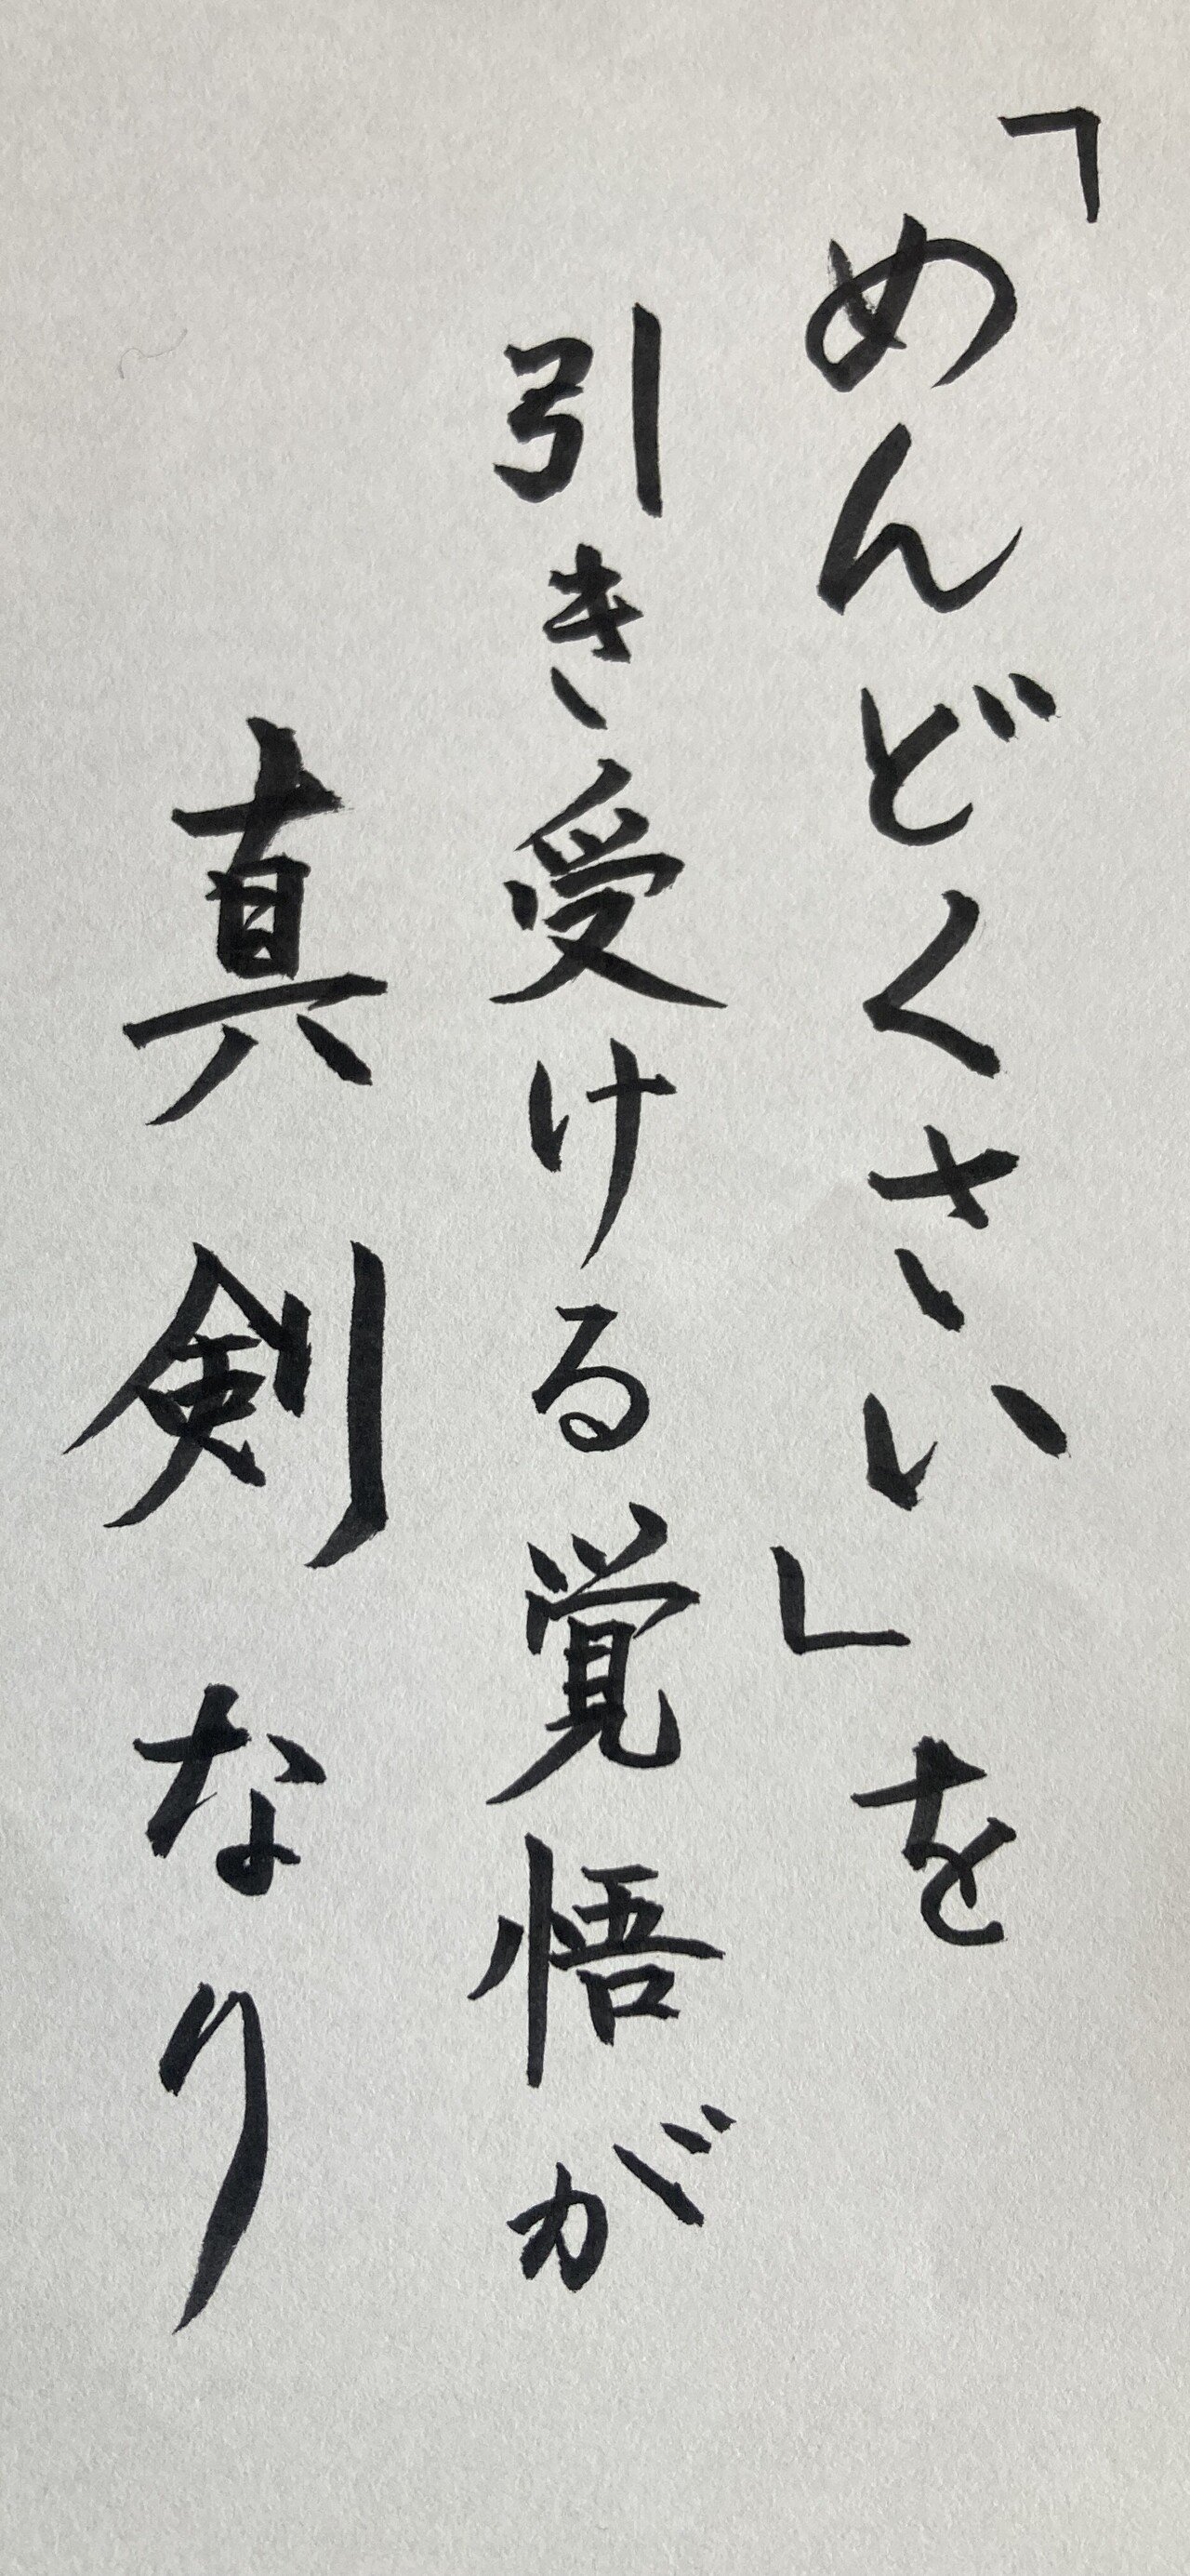 「めんどくさい」を
引き受ける覚悟が
真剣なり